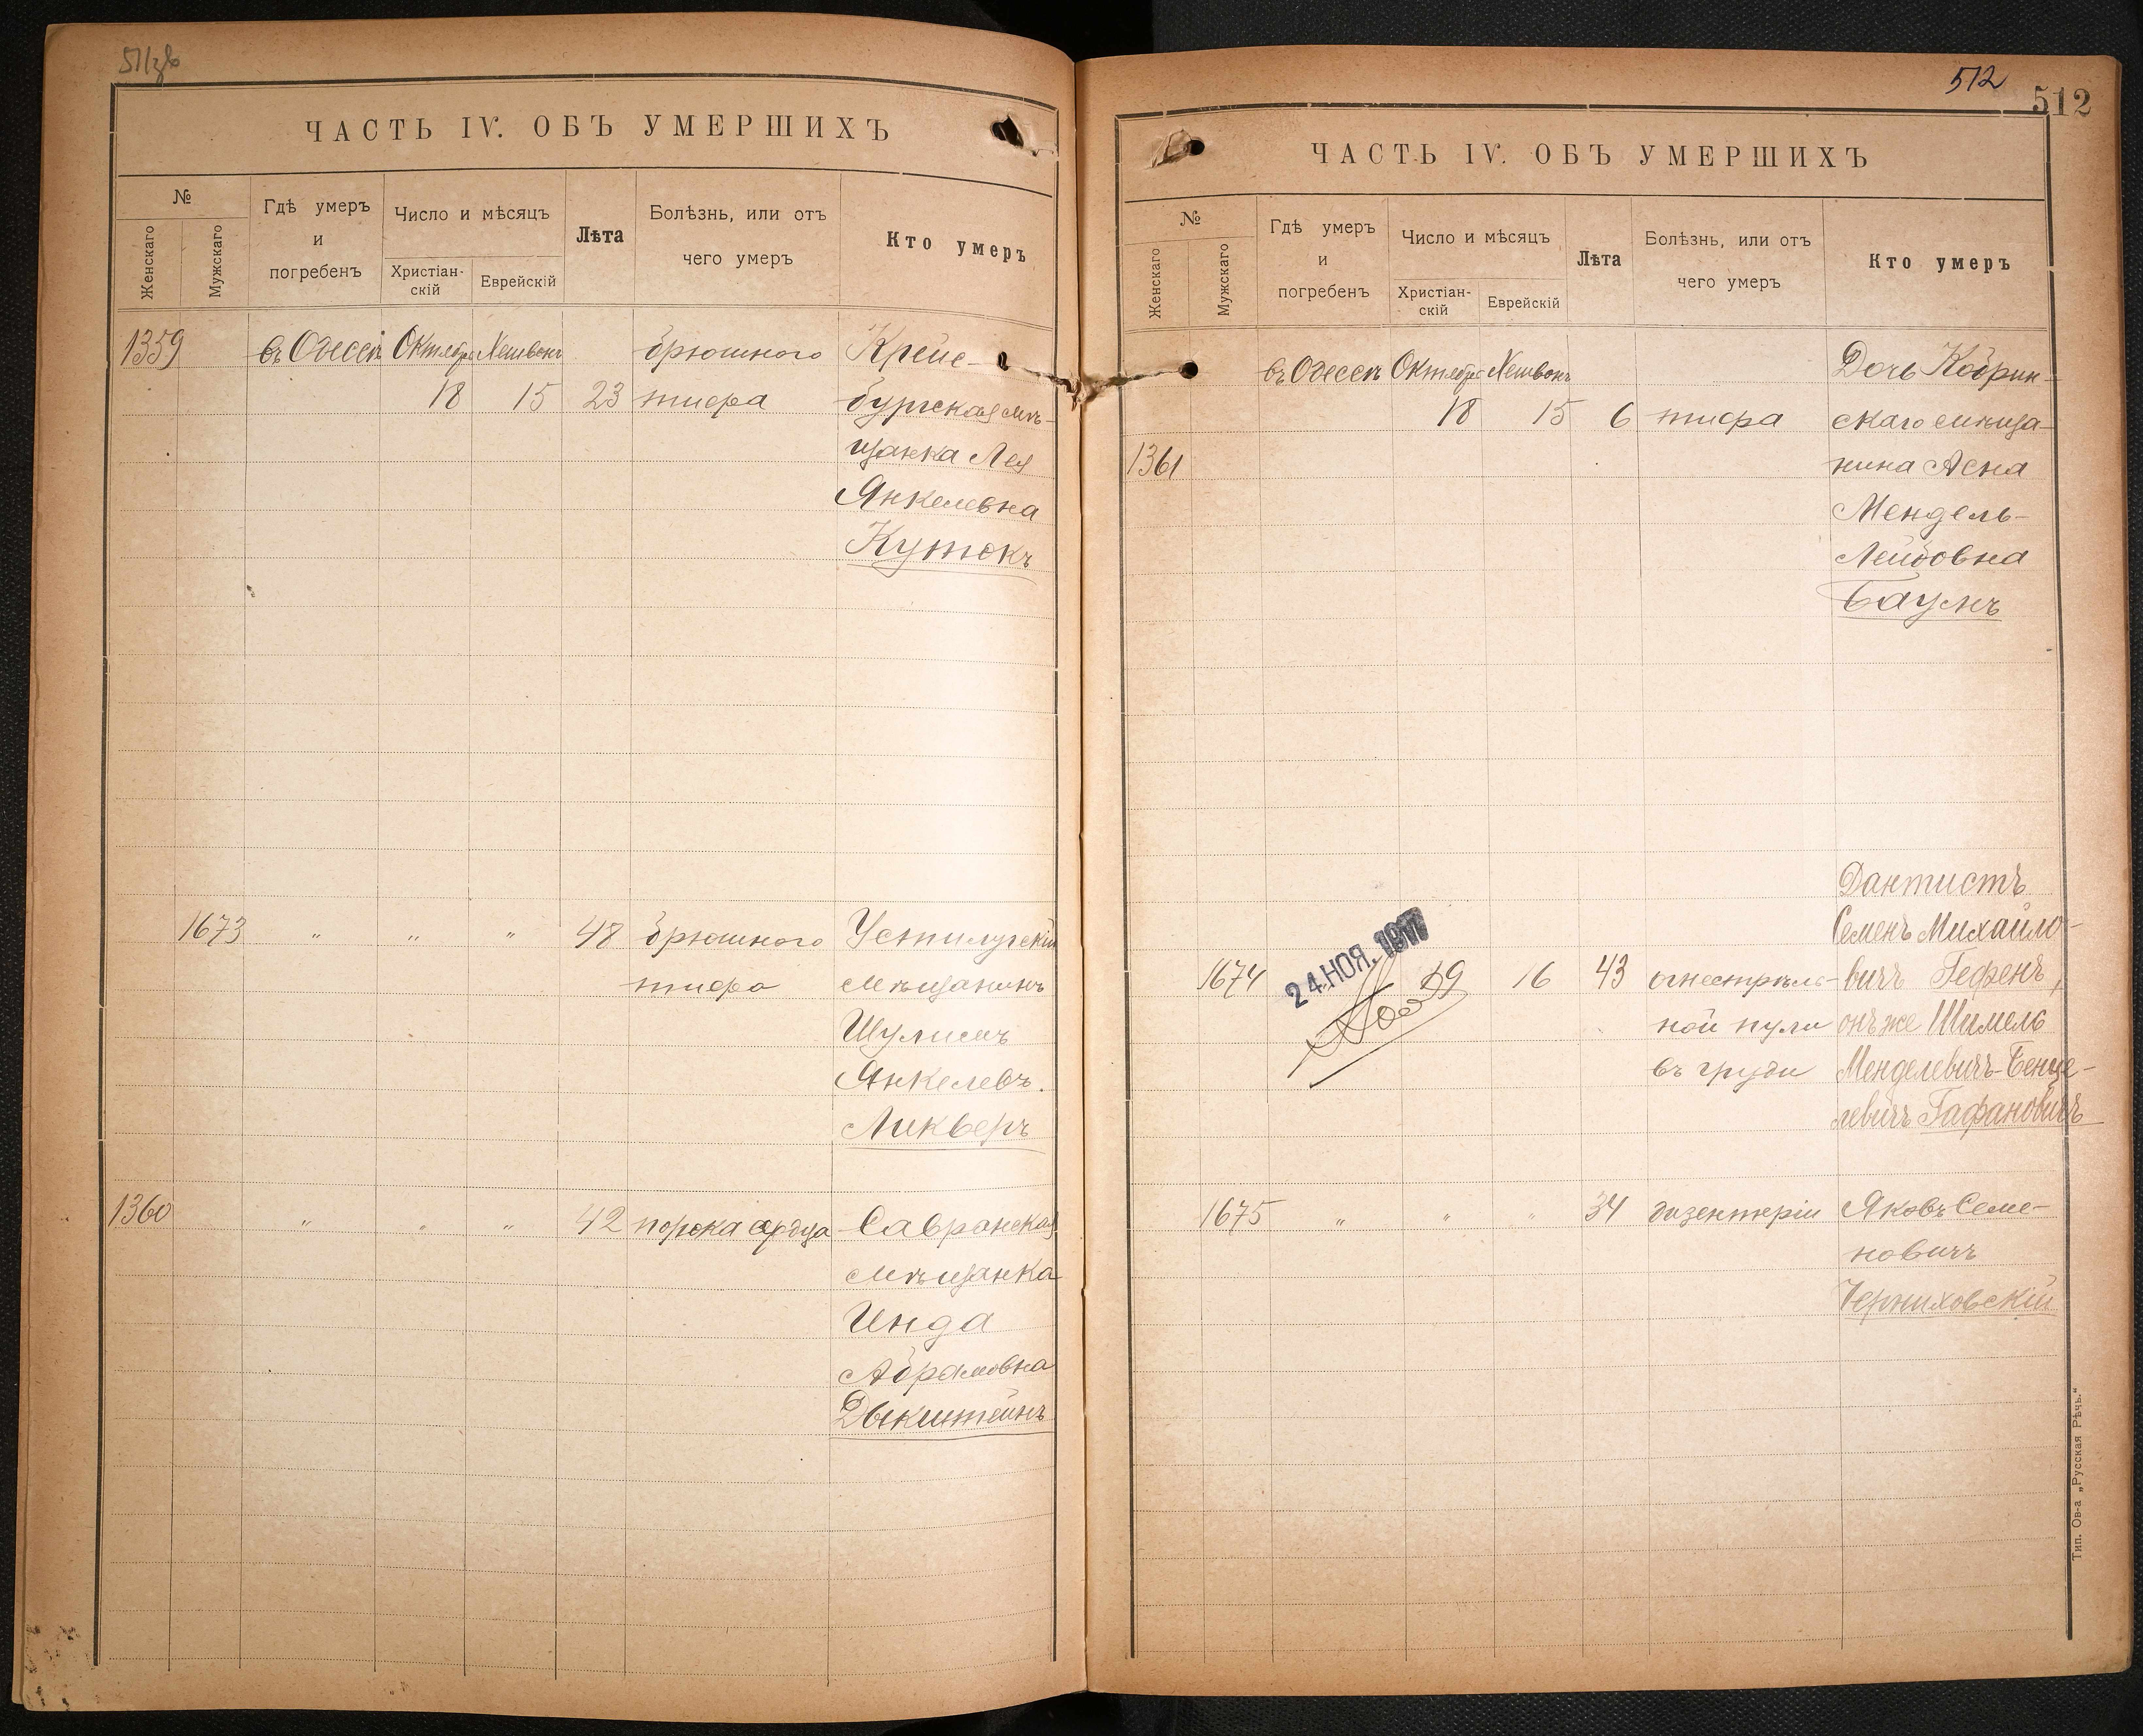 ЧАСТЬ IV. ОБЪ УМЕРШИХЪ
№
Женскаго
Мужскаго
Гдѣ умеръ
и
погребенъ
Число и мѣсяцъ
Христіан-
скій
Еврейскій
Лѣта
Болѣзнь, или отъ
чего умеръ
Кто умеръ
1359 въ Одессѣ Октября Хешвонъ брюшного Крейс-
18 15 23 тифа бургская мѣ-
щанка Лея
Янкелевна
Кутокъ
1673 " " " 48 брюшного Устилугскій
тифа мѣщанинъ
Шулимъ
Янкелевъ.
Ликверъ
1360 " " " 42 порока сердца Савранская
мѣщанка
Инда
Абрамовна
Дыкштейнъ
512
512
ЧАСТЬ IV. ОБЪ УМЕРШИХЪ
№
Женскаго
Мужскаго
Гдѣ умеръ
и
погребенъ
Число и мѣсяцъ
Христіан-
скій
Еврейскій
Лѣта
Болѣзнь, или отъ
чего умеръ
Кто умеръ
въ Одессѣ Октября Хешвонъ Дочь Кобрин-
18 15 6 тифа скаго мѣща-
1361 нина Асна
Мендель-
Лейбовна
Баумъ
Дантистъ
Семенъ Михайло-
24 НОЯ. 1917
1674 19 16 43 огнестрѣль- вичъ Гефенъ,
ной пули онъ же Шимель
въ груди Менделевичъ-Бенце-
левичъ Гафановичъ
1675 " " " 34 дизентеріи Яковъ Семе-
новичъ
Черниховскій
Тип. Ов-а „Русская Рѣчь."